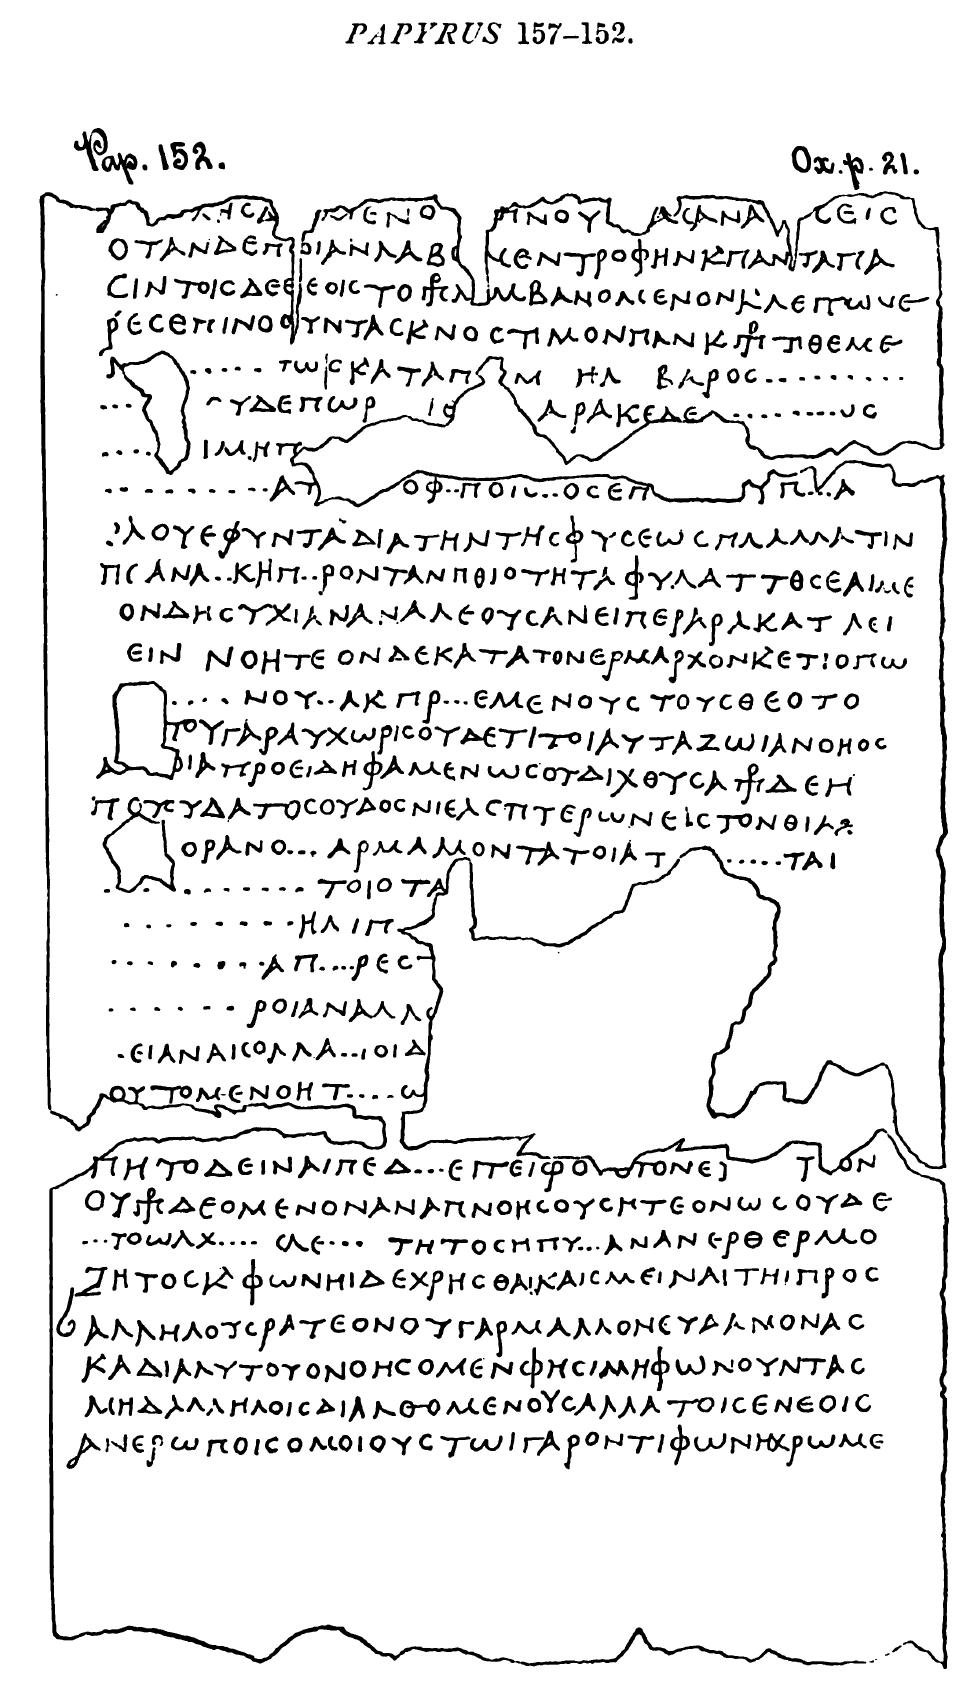 PAPYRUS 157–152.
Pap. 152. Ox. p. 21.
ΜΕΝΟ ΠΙΝΟΥ ΑΣΑΝΑ ΣΕΙΣ
ΟΤΑΝΔΕΠ ΟΙΑΝΛΑΒ ΜΕΝΤΡΟΦΗΝΚΠΑΝ ΤΑΠΑ
CΙΝΤΟΙCΔΕΕ ΕΟΙC
ΡΕCΕΠΙΝΟΟΥΝΤΑCΚΝΟCΤΙΜΟΝΠΑΝΚ ΤΙΘΕΜΕ
..... ΤΩΙCΚΑΤΑΠ Μ ΗΛ ΒΑΡΟC.........
... ΥΔΕΠΩΡ ΙC ΑΡΑΚΕΔΕ........ΥC
.... ΙΜΗΠ
.........ΑΤ ΟΦ..ΠΟΙC...ΟCΕΠ ΥΠ...Α
ΛΟΥΕΦΥΝΤΑΔΙΑΤΗΝΤΗCΦΥCΕΩCΠΛΑΛΛΑΤΙΝ
ΠCΑΝΑ..ΚΗΠ..ΡΟΝΤΑΝΠΘΙΟΤΗΤΑΦΥΛΑΤΤΘCΕΑΙΜΕ
ΟΝΔΗCΥΧΙΑΝΑΝΑΛΕΟΥCΑΝΕΙΠΕΡΑΡΑΚΑΤ ΛΕΙ
ΕΙΝ ΝΟΗΤΕΟΝΔΕΚΑΤΑΤΟΝΕΡΜΑΡΧΟΝΚΕΤΙΟΠΩ
....ΝΟΥ..ΑΚΠΡ...ΕΜΕΝΟΥCΤΟΥCΘΕΟΤΟ
ΤΟΥΓΑΡΑΥΧΩΡΙCΟΥΔΕΤΙΤΟΙΑΥΤΑΖΩΙΑΝΟΗΟC
ΔΙΑΠΡΟΕΙΔΗΦΑΜΕΝΩCΟΥΔΙΧΘΥCΑ ΔΕΗ
ΠΟΥCΥΔΑΤΟCΟΥΔΟCΝΙΕΛCΠΤΕΡΩΝΕΙCΤΟΝΘΙΑ
ΟΡΑΝΟ... ΑΡΜΑΜΟΝΤΑΤΟΙΑΤ .....ΤΑΙ
.........ΤΟΙΟΤΑ
.........ΗΛΙΠ
........ΑΠ....ΡΕC
.......ΡΟΙΑΝΑΛΛ
.ΕΙΑΝΑΙCΟΛΛΑ..ΙΟΙΔ
ΟΥΤΟΜΕΝΟΗΤ....Ω
ΠΗΤΟΔΕΙΝΑΙΠΕΔ...ΕΠΕΙΦΟ ΤΟΝΕΙ Τ ΟΝ
ΟΥ ΔΕΟΜΕΝΟΝΑΝΑΠΝΟΗCΟΥCΗΤΕΟΝΩCΟΥΔΕ
...ΤΟΩΛΧ.... CΛΕ... ΤΗΤΟCΗΠΥ...ΑΝΑΝΕΡΘΕΡΜΟ
ΖΗΤΟCΚΦΩΝΗΙΔΕΧΡΗCΘΑΙΚΑΙCΜΕΙΝΑΙΤΗΙΠΡΟC
ΑΛΛΗΛΟΥCΡΑΤΕΟΝΟΥΓΑΡΜΑΛΛΟΝΕΥΔΑΜΟΝΑC
ΚΑΔΙΑΛΥΤΟΥΟΝΟΗCΟΜΕΝΦΗCΙΜΗΦΩΝΟΥΝΤΑC
ΜΗΔΑΛΛΗΛΟΙCΔΙΑΛΘΟΜΕΝΟΥCΑΛΛΑΤΟΙCΕΝΕΟΙC
ΑΝΕΡΩΠΟΙCΟΜΟΙΟΥCΤΩΙΓΑΡΟΝΤΙΦΩΝΗΧΡΩΜΕ